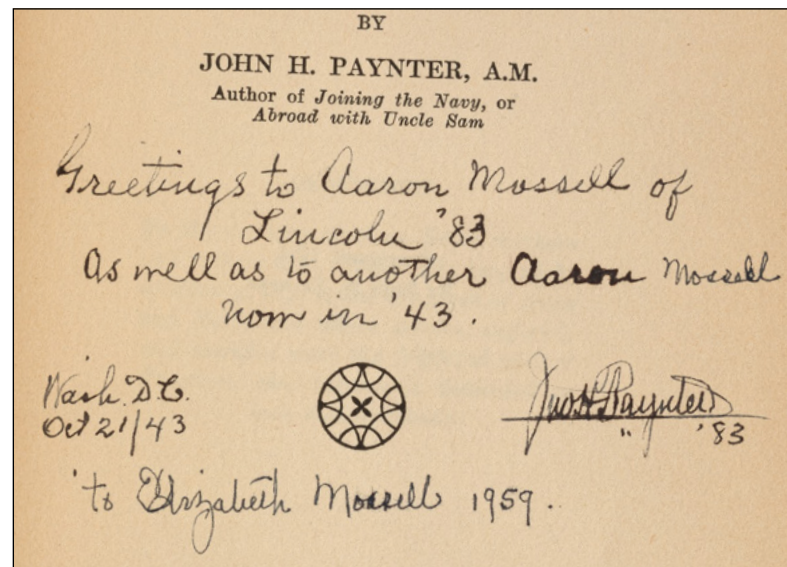 BY
JOHN H. PAYNTER, A.M.
Author of Joining the Navy, or
Abroad with Uncle Sam
Greetings to Aaron Mossell of
Lincoln '83
as well as to another Aaron Mossell
now in '43.
Wash. D.C.
Oct 21/43
Jno H Paynter
" '83
to Elizabeth Mossell 1959.